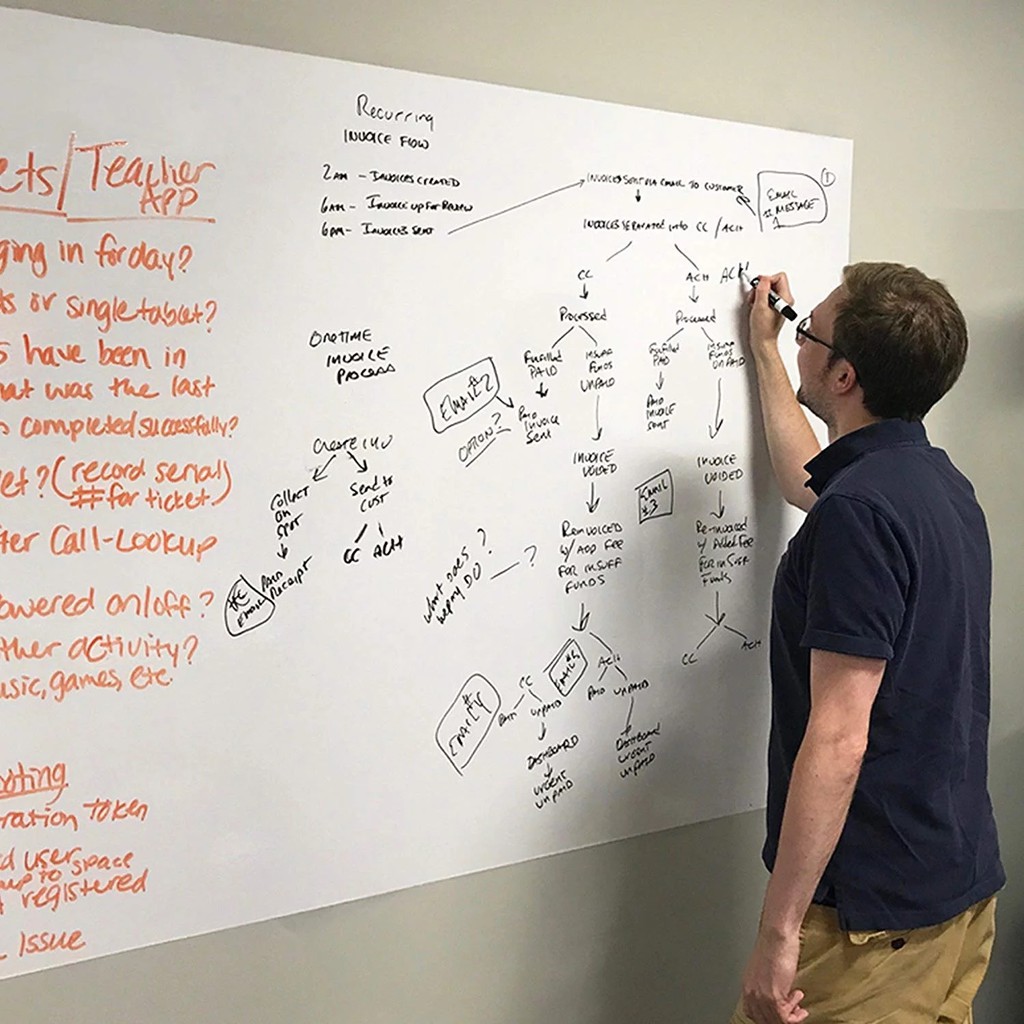 ets/Teacher
APP
ging in for day?
ts or single tablet?
s have been in
hat was the last
completed successfully?
et? (record serial
# for ticket)
ter Call-Lookup
owered on/off?
ther activity?
usic, games, etc.
oting
ration Token
d user
up to space
registered
Issue
Recurring
INVOICE FLOW
2AM - INVOICES CREATED
6AM - INVOICE UP FOR REVIEW
6PM - INVOICES SENT
ONETIME
INVOICE
PROCESS
CREATE INV
COLLECT
ON
SPOT
PAID
RECEIPT
EMAIL
Send to
CUST
CC ACH
INVOICES SENT VIA EMAIL TO CUSTOMER
EMAIL
# MESSAGE
1
1
INVOICES SEPARATED INTO CC / ACH
CC
Processed
Fulfilled
PAID
INSUFF
FUNDS
UNPAID
EMAIL 2
OPTION?
PAID
INVOICE
Sent
INVOICE
VOIDED
REINVOICED
W/ ADD FEE
FOR INSUFF
FUNDS
What does
DO
?
?
CC
PAID
UNPAID
DASHBOARD
URGENT
UNPAID
EMAIL
#4
EMAIL
ACH
PAID UNPAID
DASHBOARD
URGENT
UNPAID
ACH
ACH
Processed
Fulfilled
PAID
INSUFF
FUNDS
UNPAID
PAID
INVOICE
SENT
INVOICE
VOIDED
EMAIL
#3
Re-invoiced
W/ Added Fee
FOR INSUFF
Funds
CC
ACH